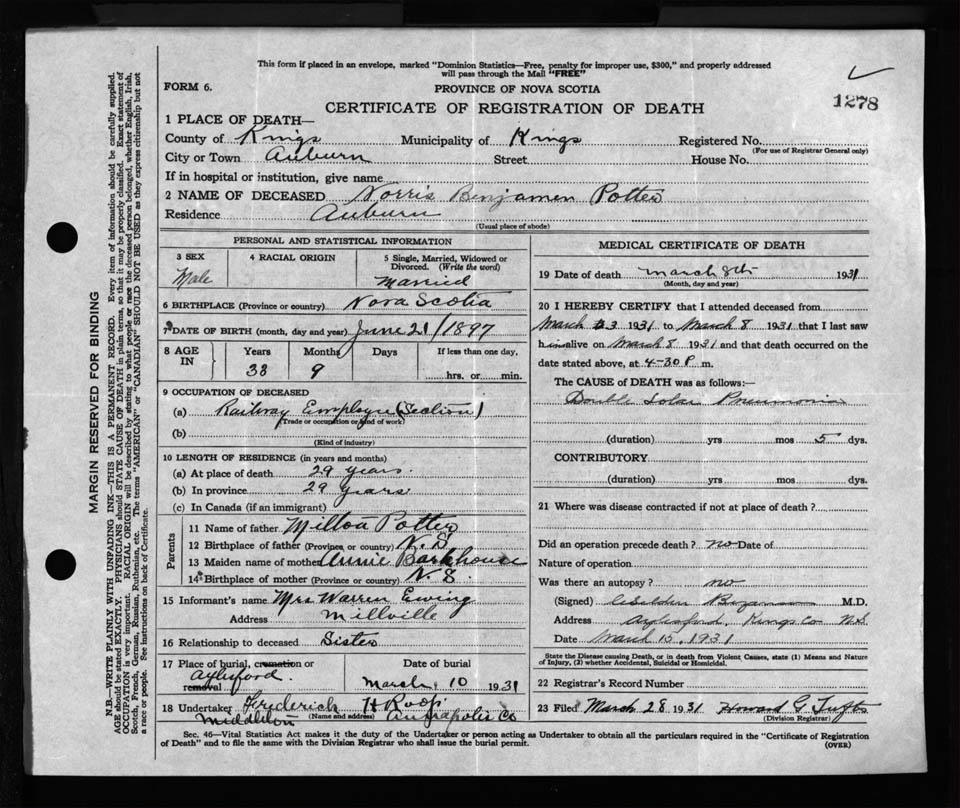 This form if placed in an envelope, marked "Dominion Statistics—Free, penalty for improper use, $300," and properly addressed
will pass through the Mail "FREE"
FORM 6.
PROVINCE OF NOVA SCOTIA
1278
CERTIFICATE OF REGISTRATION OF DEATH
1 PLACE OF DEATH—
County of Kings Municipality of Kings Registered No.
(For use of Registrar General only)
City or Town Auburn Street House No.
If in hospital or institution, give name
2 NAME OF DECEASED Norris Benjamen Potter
Residence Auburn
(Usual place of abode)
PERSONAL AND STATISTICAL INFORMATION
3 SEX 4 RACIAL ORIGIN 5 Single, Married, Widowed or
Divorced. (Write the word)
Male Married
6 BIRTHPLACE (Province or country) Nova Scotia
7 DATE OF BIRTH (month, day and year) June 21/1897
8 AGE IN Years Months Days If less than one day,
33 9 hrs. or min.
9 OCCUPATION OF DECEASED
(a) Railway Employee (Section)
(Trade or occupation or kind of work)
(b)
(Kind of industry)
10 LENGTH OF RESIDENCE (in years and months)
(a) At place of death 29 years.
(b) In province 29 years
(c) In Canada (if an immigrant)
Parents
11 Name of father Milton Potter
12 Birthplace of father (Province or country) N.S
13 Maiden name of mother Annie Barkhouse
14 Birthplace of mother (Province or country) N.S.
15 Informant's name Mrs Warren Ewing
Address Millville
16 Relationship to deceased Sister
17 Place of burial, cremation or
removal Aylesford. Date of burial
March 10 1931
18 Undertaker Frederick H Roop
(Name and address) Middleton Annapolis Co
MEDICAL CERTIFICATE OF DEATH
19 Date of death March 8th 1931
(Month, day and year)
20 I HEREBY CERTIFY that I attended deceased from
March 3 1931 to March 8 1931 that I last saw
him alive on March 8 1931 and that death occurred on the
date stated above, at 4-30 P m.
The CAUSE of DEATH was as follows:—
Double Lobar Pneumonia
(duration) yrs mos 5 dys.
CONTRIBUTORY
(duration) yrs mos dys.
21 Where was disease contracted if not at place of death?
Did an operation precede death? no Date of
Nature of operation
Was there an autopsy? no
(Signed) M.D.
Address Aylesford, Kings Co N.S.
Date March 15, 1931
State the Disease causing Death, or in death from Violent Causes, state (1) Means and Nature
of Injury, (2) whether Accidental, Suicidal or Homicidal.
22 Registrar's Record Number
23 Filed March 28 1931 Howard G Tufts
(Division Registrar)
Sec. 46—Vital Statistics Act makes it the duty of the Undertaker or person acting as Undertaker to obtain all the particulars required in the "Certificate of Registration
of Death" and to file the same with the Division Registrar who shall issue the burial permit.
(OVER)
MARGIN RESERVED FOR BINDING
N.B.—WRITE PLAINLY WITH UNFADING INK—THIS IS A PERMANENT RECORD. Every item of information should be carefully supplied.
AGE should be stated EXACTLY. PHYSICIANS should STATE CAUSE OF DEATH in plain terms, so that it may be properly classified. Exact statement of
OCCUPATION is very important. RACIAL ORIGIN will be described by stating to what people or race the deceased person belonged, whether English, Irish,
Scotch, French, German, Russian, Ruthenian, etc. The terms "AMERICAN" or "CANADIAN" SHOULD NOT BE USED as they express citizenship but not
a race or people. See instructions on back of Certificate.